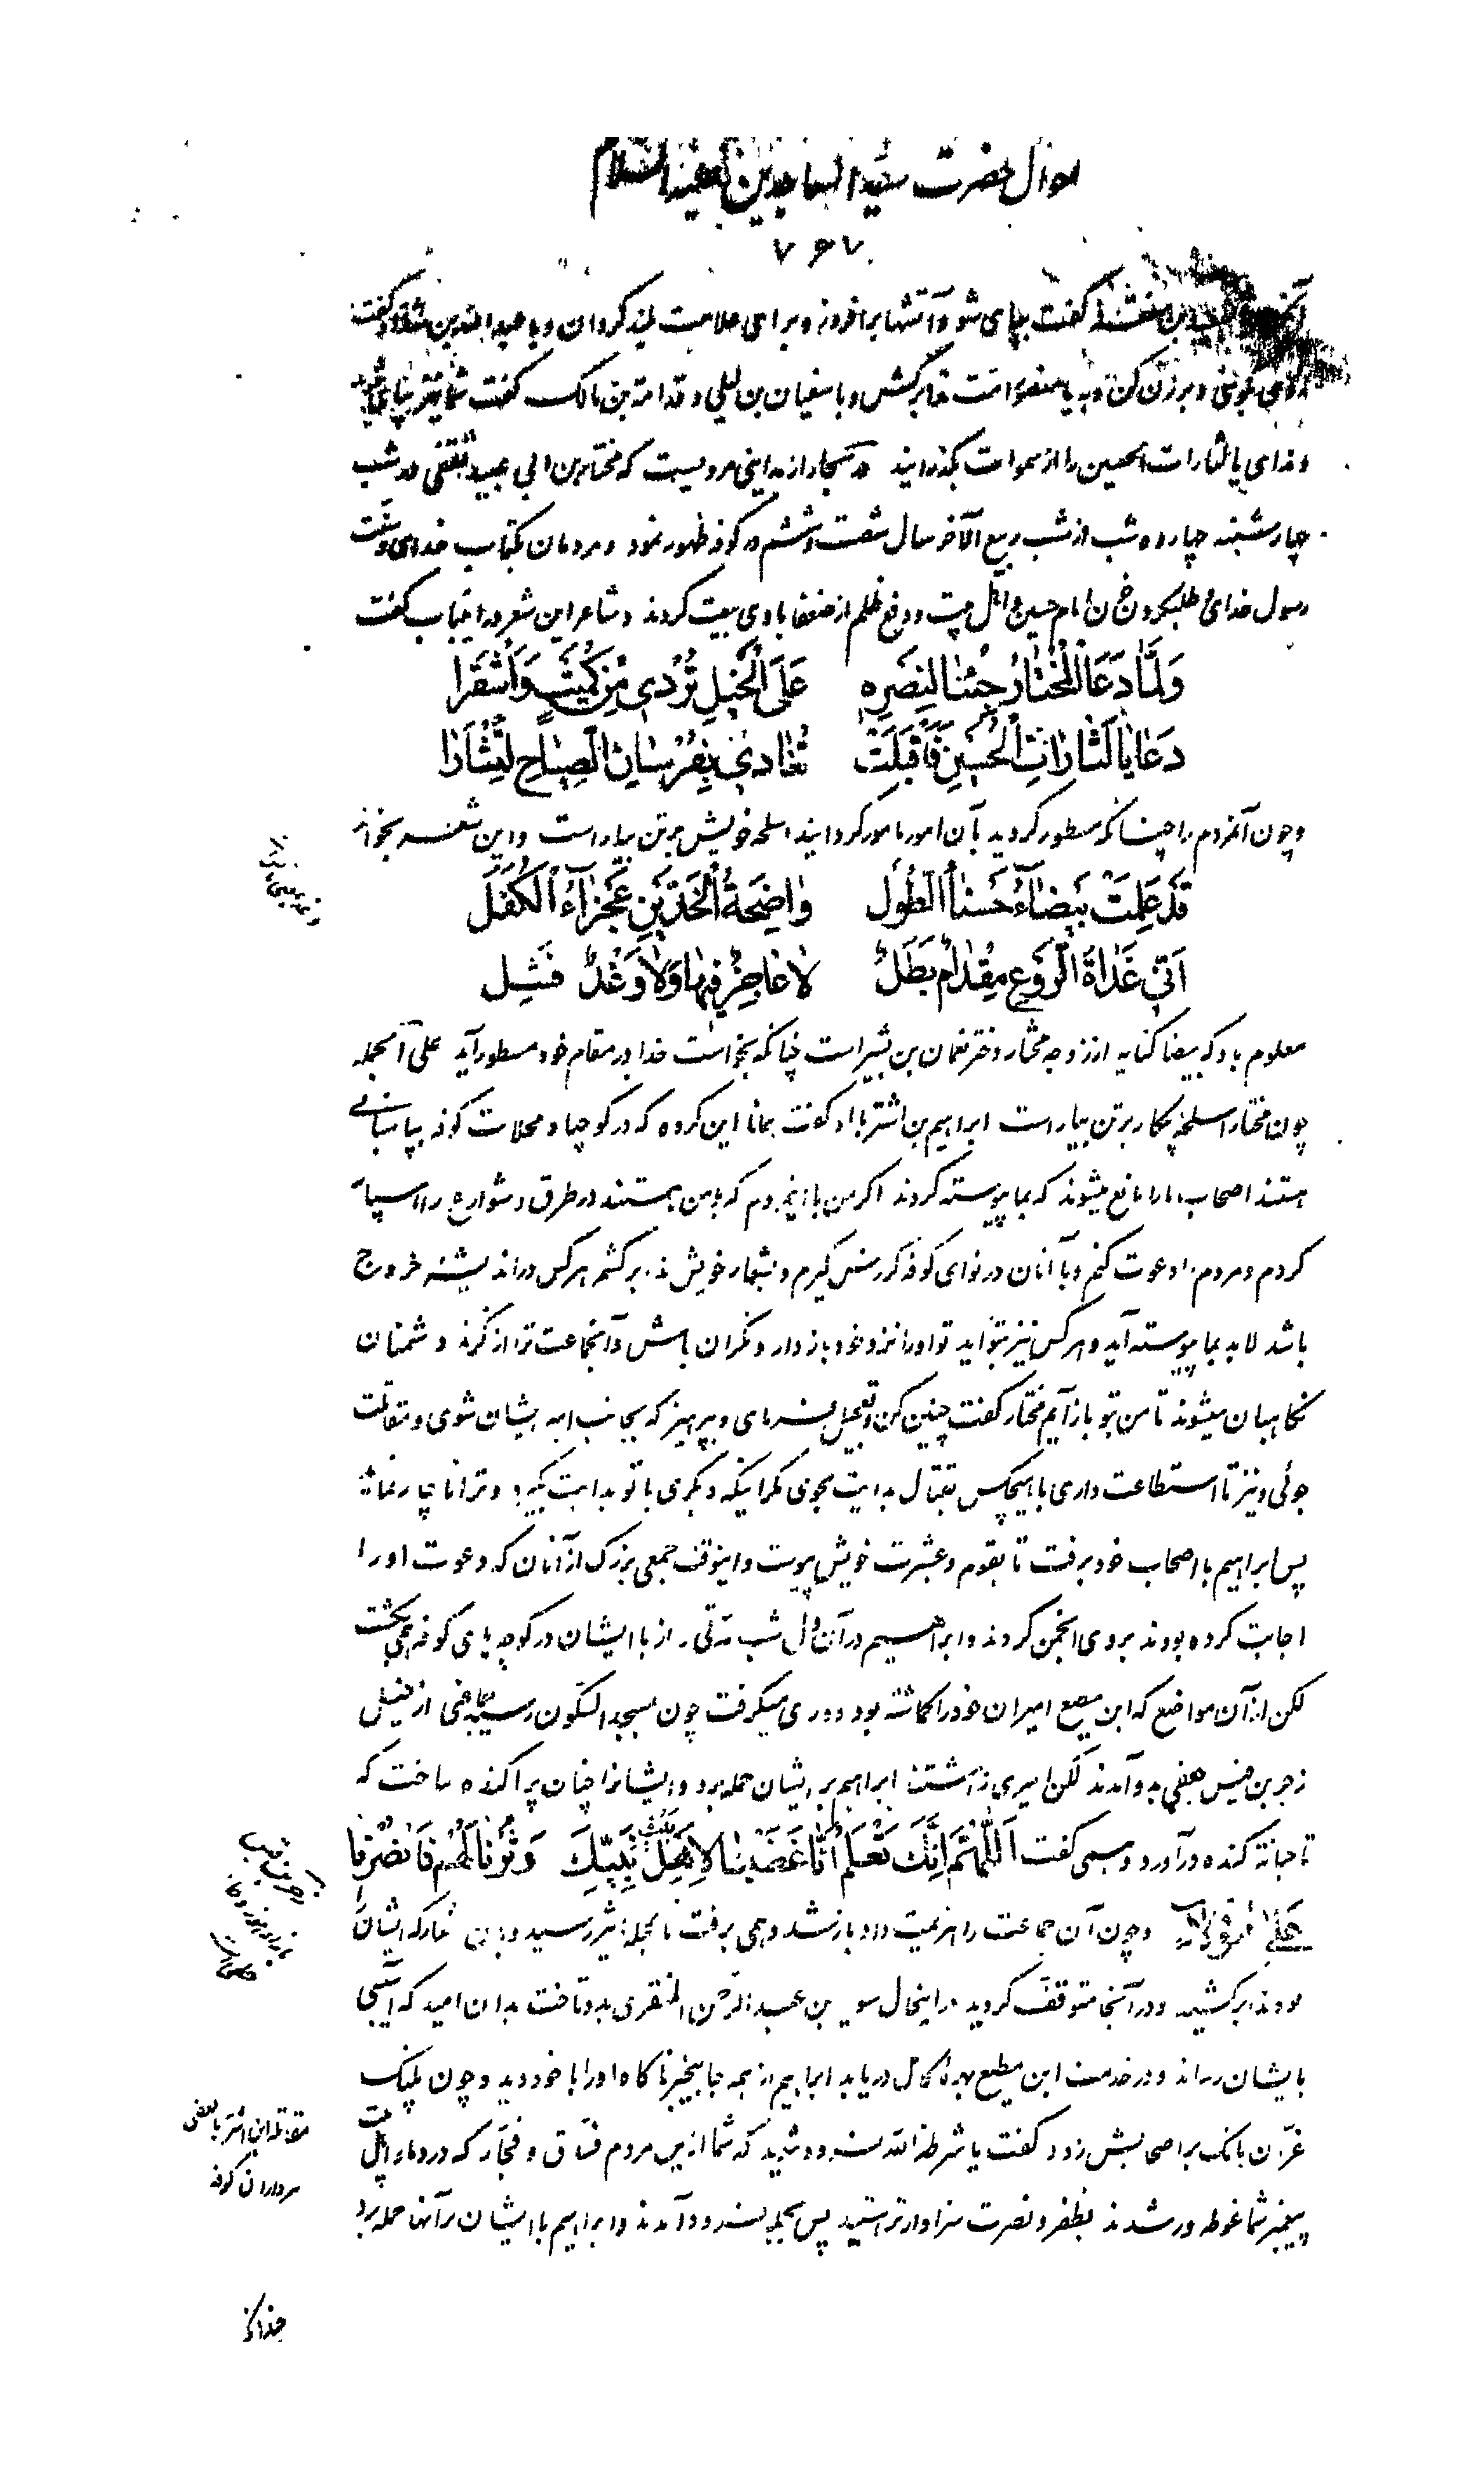 احوال حضرت سید الساجدین علیه السلام
۷۶۷
گفت بپای شو و آتشها برافروز و برای علامت بلند گردان و با عبدالله بن شداد گفت
کن و به یا منصور امت برکش و با سفیان بن لیلی و قدامة بن مالک گفت شما نیز بپای شوید
و ندای یا لثارات الحسین را از سموات بگذرانید در بحار از مداینی مرویست که مختار بن ابی عبید ثقفی در شب
چارشنبه چهارده شب از شب ربیع الآخر سال شصت و ششم در کوفه ظهور نمود و مردمان بکتاب خدای و سنت
رسول خدای و طلب کردن خون امام حسین و اهل بیت و دفع ظلم از ضعفا با وی بیعت کردند و شاعر این شعر در اینباب گفت
وَلَمّا دَعَا الْمُخْتارُ جِئْنا لِنَصْرِهِ عَلَی الْخَیْلِ تُرْدی مِنْ کُمَیْتٍ وَاَشْقَرا
دَعا یا لَثاراتِ الْحُسَیْنِ فَاَقْبَلَتْ تُغادی بِفُرْسانِ الصِّباحِ لِتَثْاَرا
و چون آنمردم را چنانکه مسطور گردید بآن امور مامور گردانید اسلحه خویش بر تن بیاراست و این شعر بخواند
قَدْ عَلِمَتْ بَیْضآءُ حَسْنآءُ الطُّلَل واضِحَةُ الْخَدَّیْنِ عَجْزآءُ الْکَفَل
اَنّی غَداةَ الرَّوْعِ مِقْدامٌ بَطَلْ لا عاجِزٌ فیها وَلا وَغْدٌ فَشِل
معلوم باد که بیضا کنایه از زوجه مختار دختر نعمان بن بشیر است چنانکه بخواست خدا در مقام خود مسطور آید علی الجمله
چون مختار اسلحه پیکار بر تن بیاراست ابراهیم بن اشتر با او گفت همانا این گروه که در کوچها و محلات کوفه بپاسبانی
هستند اصحاب ما را مانع میشوند که بما پیوسته گردند اگر من با اینمردم که با من هستند در طرق و شوارع رااسپار
گردم و مردم را دعوت کنم و با آنان در نواحی کوفه گردش گیرم و بشعار خویش ندا برکشم هر کس در اندیشه خروج
باشد لابد بما پیوسته آید و هر کس نیز بتو آید تو او را نزد خود بازدار و نگران باش و آنجماعت ترا از گزند دشمنان
نگاهبان میشوند تا من بتو باز آیم مختار گفت چنین کن و تعجیل بفرمای و بپرهیز که بجانب امیر ایشان شوی و مقاتلت
جوئی و نیز تا استطاعت داری با هیچکس بقتال بدایت مجوی مگر اینکه دیگری با تو بدایت گیرد و ترا ناچار نماید
پس ابراهیم با اصحاب خود برفت تا بقوم و عشیرت خویش پیوست و اینوقت جمعی بزرگ از آنان که دعوت او را
اجابت کرده بودند بر وی انجمن کردند و ابراهیم در آن اول شب مدتی دراز با ایشان در کوچه های کوفه همی بگشت
لکن از آن مواضع که ابن مطیع امیران خود را گماشته بود دوری میگرفت چون بمسجد السکون رسید جماعتی از خیل
زحر بن قیس جعفی بدو آمدند لکن امیری نداشتند ابراهیم بر ایشان حمله برد و ایشانرا چنان پراکنده ساخت که
تا جبانه کنده درآورد و همی گفت اَللّهُمَّ اِنَّکَ تَعْلَمُ اَنّا غَضِبْنا لِاَهْلِ بَیْتِ نَبِیِّکَ وَثُرْنا لَهُمْ فَانْصُرْنا
عَلی هؤُلاءِ و چون آن جماعت را هزیمت داد باز شد و همی برفت تا بجبانه اثیر رسید و ندا بشعار که ایشان را
بودند برکشید و در آنجا متوقف گردید در اینحال سوید بن عبدالرحمن المنقری بدو تاخت بدان امید که آسیبی
بایشان رساند و در خدمت ابن مطیع بهره کامل دریابد ابراهیم از همه جا بیخبر ناگاه او را با خود دید و چون پلنگ
غرّان بانگ بر اصحابش زد و گفت یا شرطة الله فرود شوید که شما از این مردم فساق و فجار که در دماء اهل بیت
پیغمبر شما غوطه ور شدند بظفر و نصرت سزاوارتر هستید پس بجمله فرود آمدند و ابراهیم با ایشان بر آنها حمله برد
مقاتله ابن اشتر با بعضی
سرداران کوفه